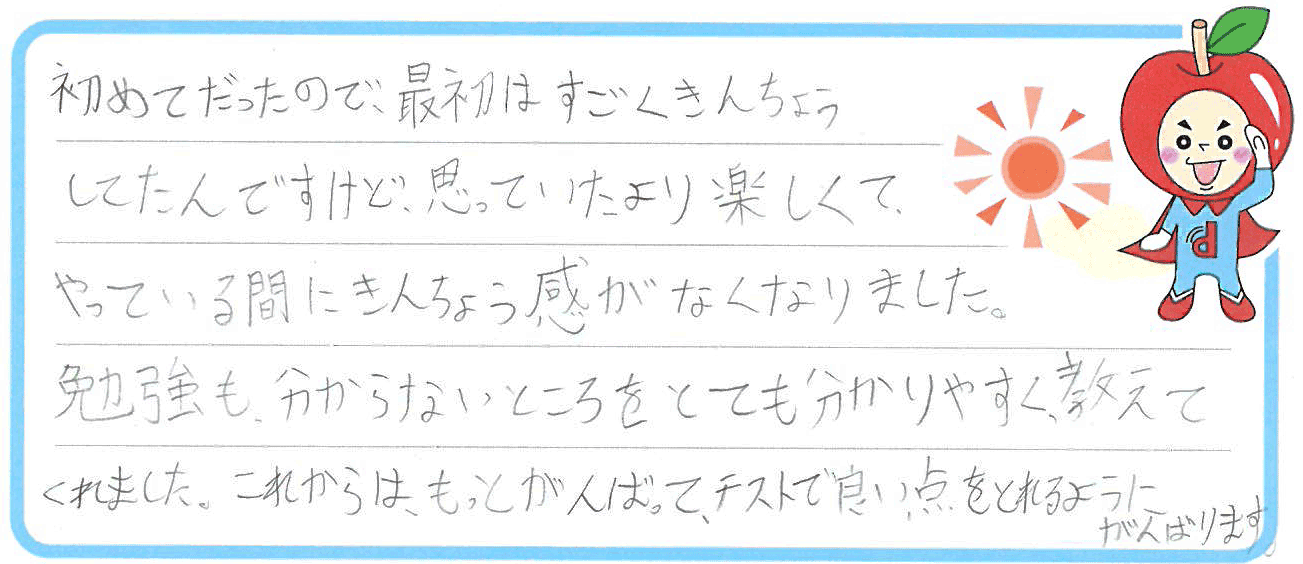 初めてだったので、最初はすごくきんちょう
してたんですけど、思っていたより楽しくて、
やっている間にきんちょう感がなくなりました。
勉強も、分からないところをとても分かりやすく、教えて
くれました。これからは、もっとがんばって、テストで良い点をとれるように
がんばります。